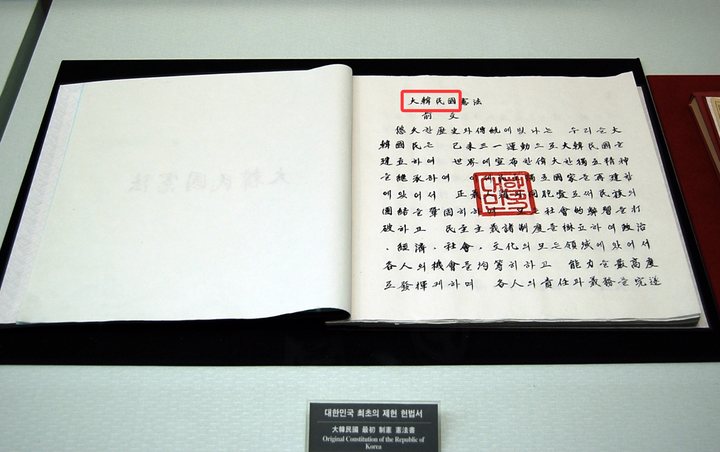 大韓民國憲法
前文
悠久한歷史와傳統에빛나는 우리들大
韓國民은 己未三一運動으로大韓民國을
建立하여 世界에宣布한偉大한獨立精神
을繼承하여 이제民主獨立國家를再建함
에있어서 正義人道와同胞愛로써民族의
團結을鞏固히하며 모든社會的弊習을打
破하고 民主主義諸制度를樹立하여政治
,經濟,社會,文化의모든領域에있어서
各人의機會를均等히하고 能力을最高度
로發揮케하며 各人의責任과義務를完遂
대한민국 최초의 제헌 헌법서
大韓民國 最初 制憲 憲法書
Original Constitution of the Republic of
Korea